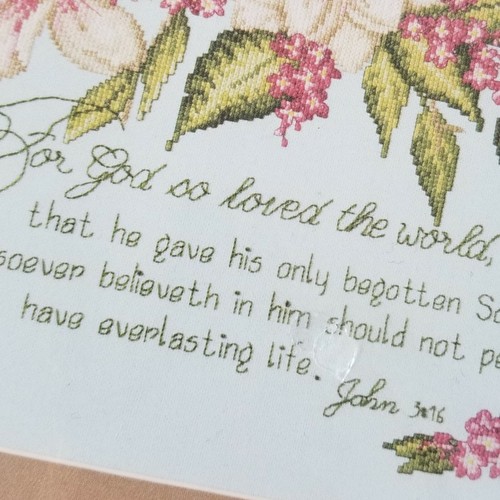 For God so loved the world,
that he gave his only begotten So
soever believeth in him should not pe
have everlasting life.
John 3:16